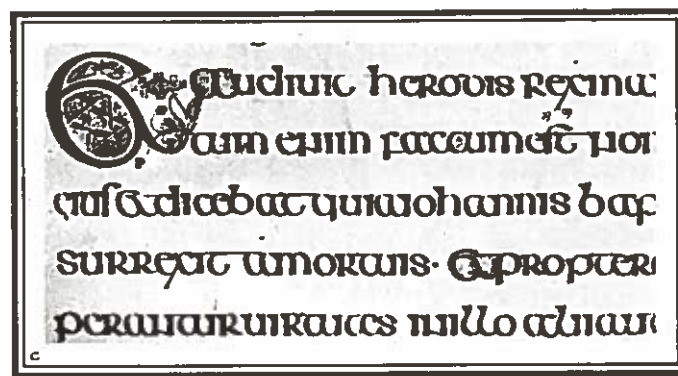 Et audiuit herodis rex ma
tum enim factum est nom
eius et dicebat quia iohannis bap
surrexit a mortuis· Et proptere
perantur uirtutes in illo alii aut
c